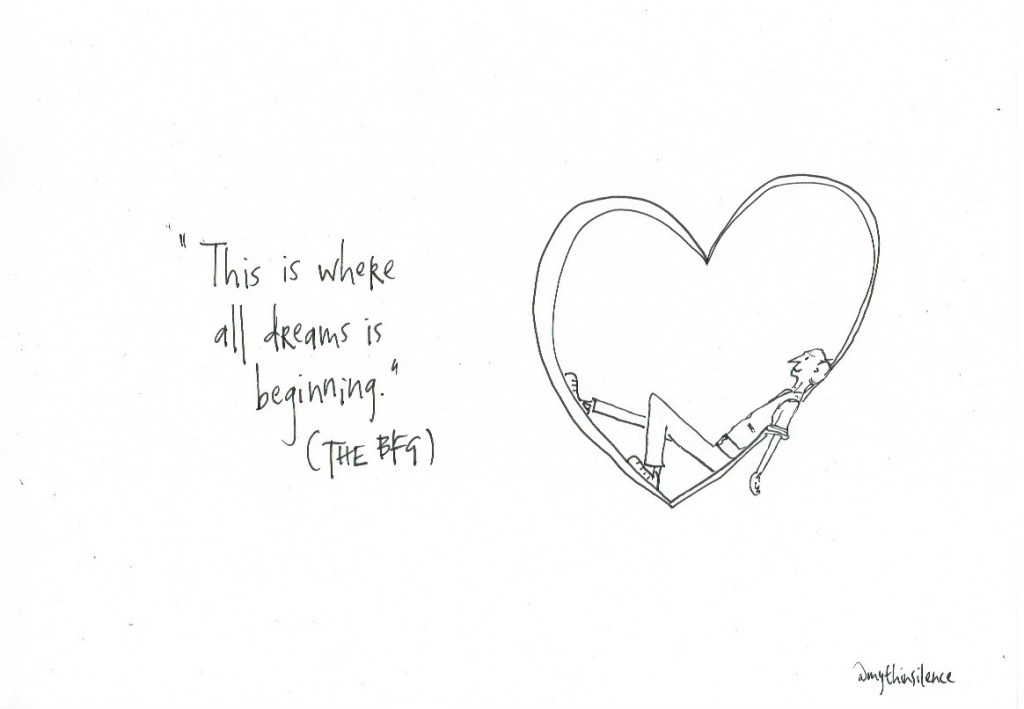 "This is where
all dreams is
beginning."
(THE BFG)
@mythinsilence